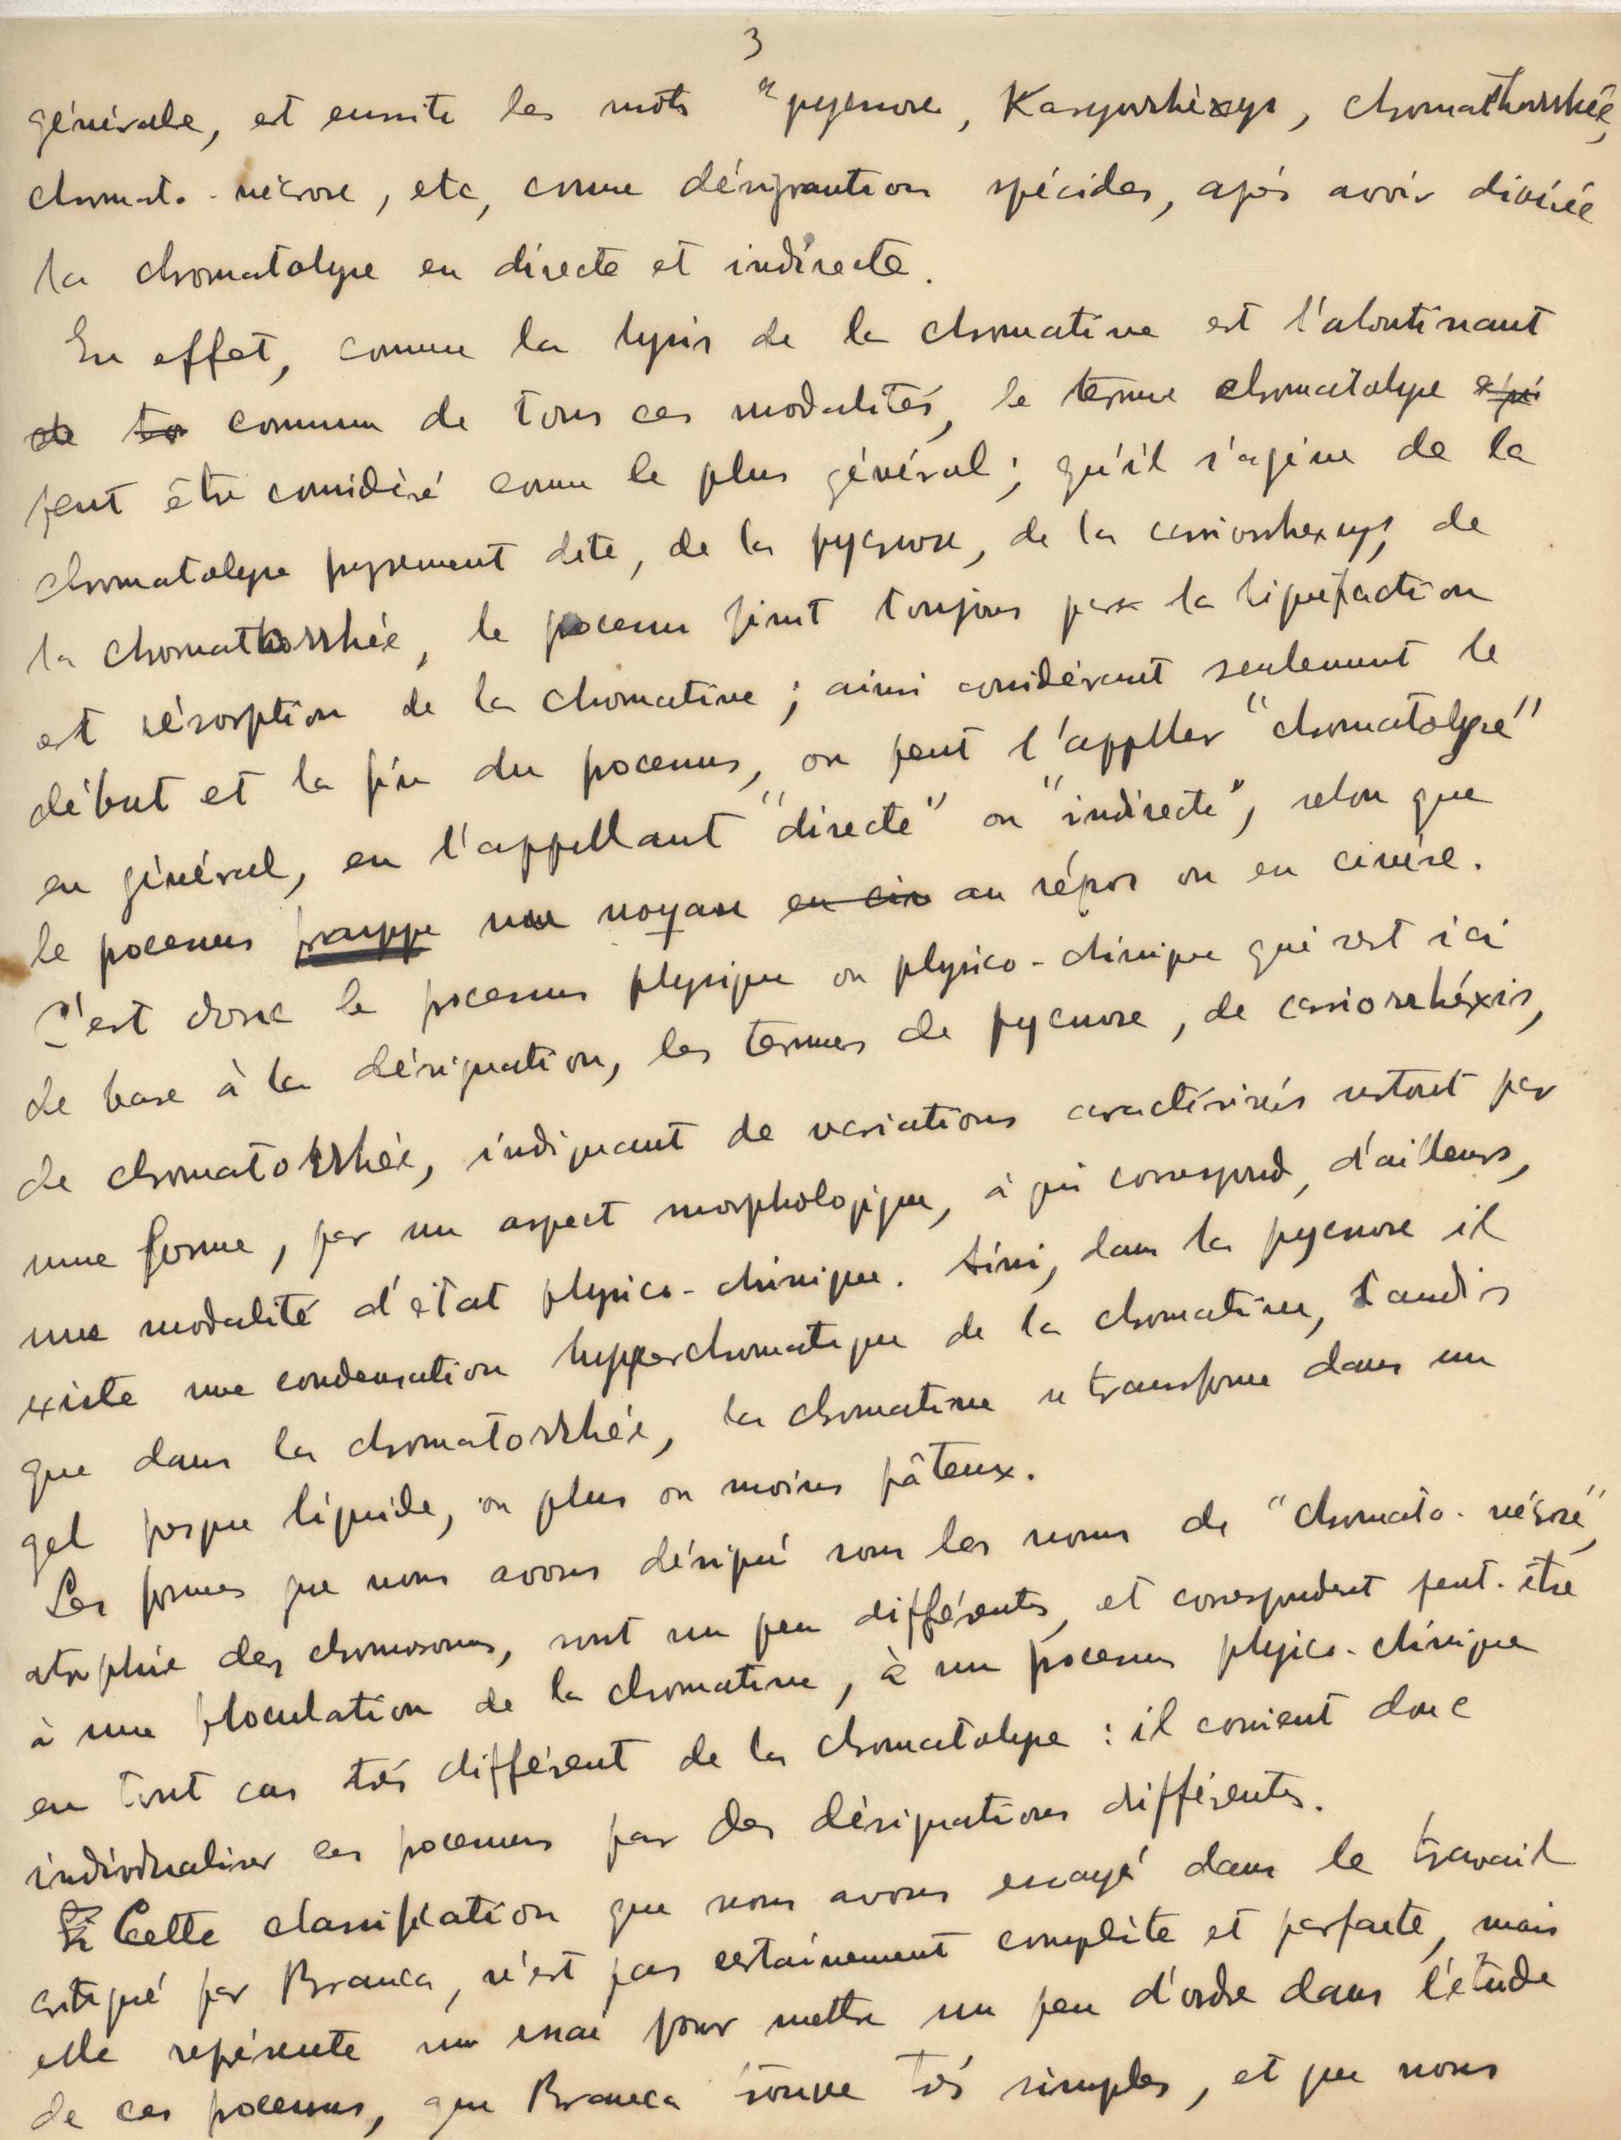 3
générale, et ensuite les mots "pycnose, Karyorrhéxys, chromathorrhée,
chromato-nécrose, etc, comme désignation spéciales, après avoir divisée
la chromatolyse en directe et indirecte.
En effet, comme la lysis de la chromatine est l'aboutinant
de to commun de tous ces modalités, le terme chromatolyse
peut être considéré comme le plus général; qu'il s'agisse de la
chromatolyse proprement dite, de la pycnose, de la carriorrhexys, de
la chromathorrhée, le processus finit toujours par la liquéfaction
et résorption de la chromatine; ainsi considérant seulement le
début et la fin du processus, on peut l'appeller "chromatolyse"
en général, en l'appellant "directe" ou "indirecte", selon que
le processus frauppe une noyau en cin au répos ou en cinèse.
C'est donc le processus physique ou physico-chimique qui sert ici
de base à la désignation, les termes de pycnose, de carriorrhéxis,
de chromatorrhée, indiquant de variations caractérisés surtout par
une forme, par un aspect morphologique, à qui correspond, d'ailleurs,
une modalité d'état physico-chimique. Ainsi, dans la pycnose il
existe une condensation hyperchromatique de la chromatine, tandis
que dans la chromatorrhée, la chromatine se transforme dans un
gel presque liquide, ou plus ou moins pâteux.
Les formes que nous avons désigné sous les noms de "chromato-nécrose",
atrophie des chromosomes, sont un peu différentes, et correspondent peut-être
à une floculation de la chromatine, à un processus physico-chimique
en tout cas très différent de la chromatolyse : il convient donc
individualiser ces processus par des désignations différentes.
Cette classification que nous avons essayé dans le travail
critiqué par Branca, n'est pas certainement complète et parfaite, mais
elle représente un essai pour mettre un peu d'ordre dans l'étude
de ces processus, que Branca trouve très simples, et que nous